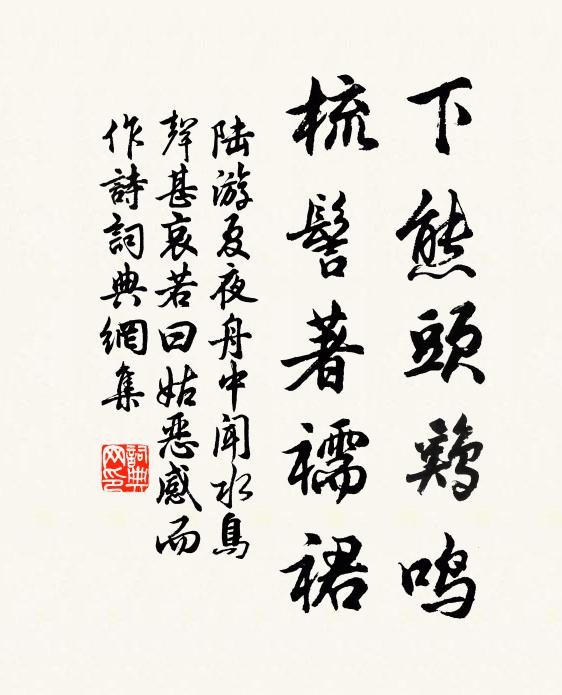 下熊頭鷄鳴
梳髻著襦裙
陸游夏夜舟中聞水鳥
聲甚哀若曰姑惡感而
作詩詞典網集
詞典
网印